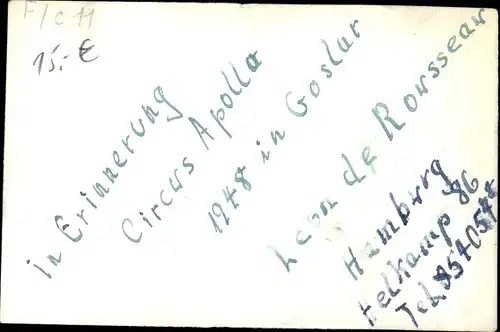 F/C 11
15.- €
in Erinnerung
Circus Apolla
1948 in Goslar
Leon de Rousseau
Hamburg
Helkamp 86
Tel.